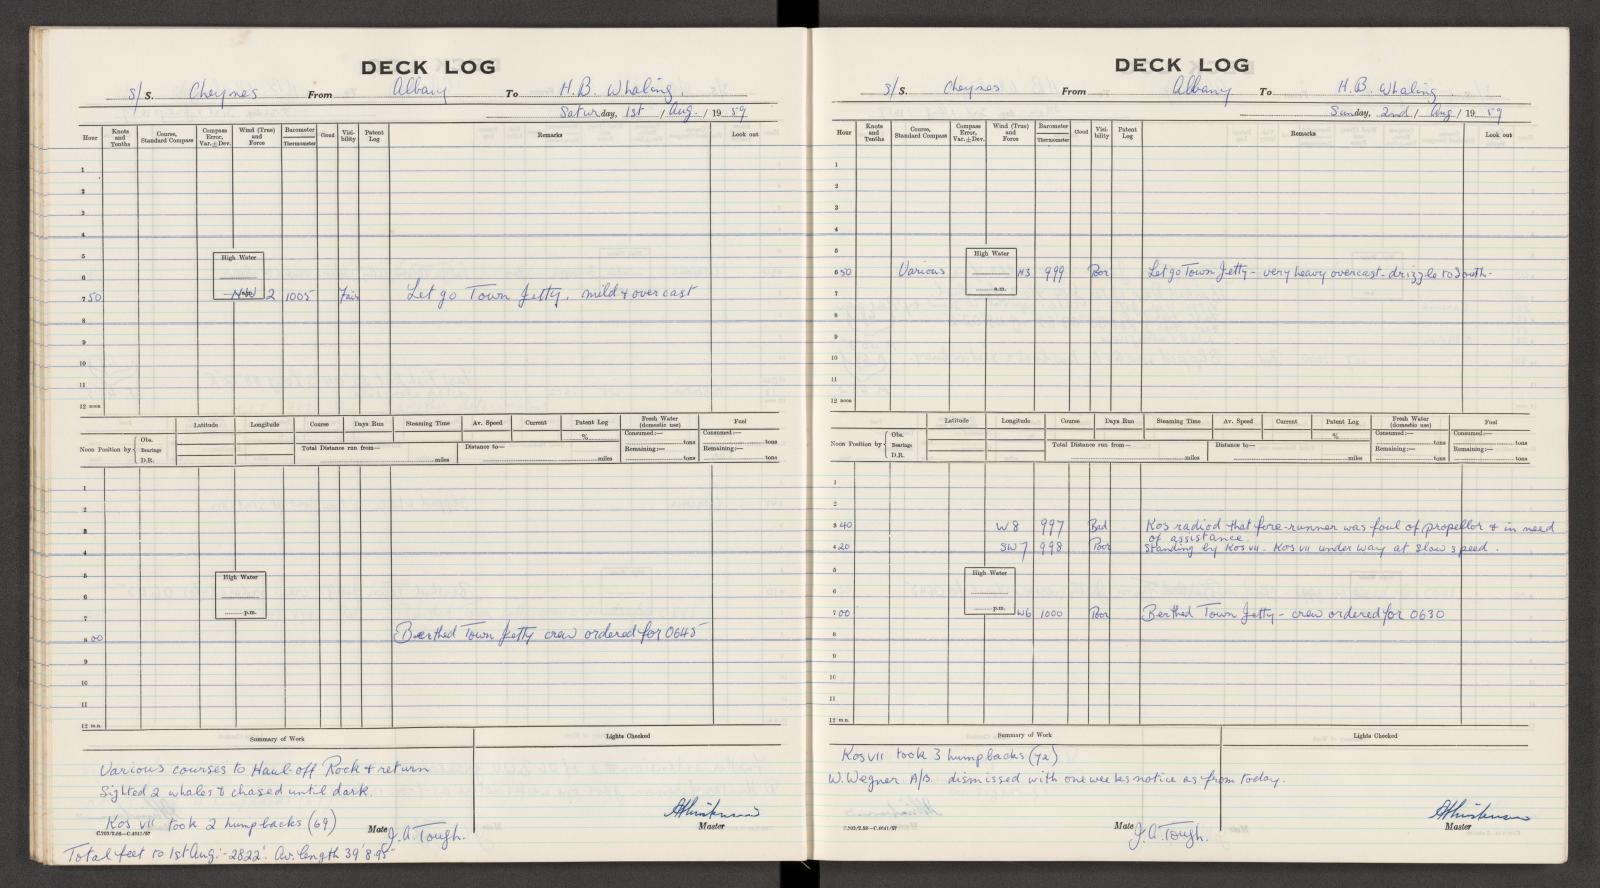 DECK LOG
S/S. Cheynes From Albany To H.B. Whaling.
Saturday, 1st / Aug. / 19 59
Hour Knots and Tenths Course, Standard Compass Compass Error, Var.±Dev. Wind (True) and Force Barometer Thermometer Cloud Visibility Patent Log Remarks Look out
1
2
3
4
5 High Water
6
7 50 NW 2 1005 Fair Let go Town Jetty. mild & overcast
8
9
10
11
12 noon
Latitude Longitude Course Days Run Steaming Time Av. Speed Current Patent Log Fresh Water (domestic use) Fuel
% Consumed:— tons Consumed:— tons
Noon Position by Obs. Bearings D.R. Total Distance run from— miles Distance to— miles Remaining:— tons Remaining:— tons
1
2
3
4
5 High Water
6
7 p.m.
8 00 Berthed Town Jetty crew ordered for 0645
9
10
11
12 m.n.
Summary of Work Lights Checked
Various courses to Haul-off Rock & return
Sighted 2 whales & chased until dark.
Kos VII took 2 humpbacks (69)
Mate J.A. Tough. Master
C.702/2.58—C.4041/57
Total feet to 1st Aug:- 2822'. Av. length 39' 8.95"
DECK LOG
S/S. Cheynes From Albany To H.B. Whaling.
Sunday, 2nd / Aug / 19 59
Hour Knots and Tenths Course, Standard Compass Compass Error, Var.±Dev. Wind (True) and Force Barometer Thermometer Cloud Visibility Patent Log Remarks Look out
1
2
3
4
5 High Water
6 50 Various N3 999 Poor Let go Town Jetty - very heavy overcast - drizzle to South-
7 a.m.
8
9
10
11
12 noon
Latitude Longitude Course Days Run Steaming Time Av. Speed Current Patent Log Fresh Water (domestic use) Fuel
% Consumed:— tons Consumed:— tons
Noon Position by Obs. Bearings D.R. Total Distance run from— miles Distance to— miles Remaining:— tons Remaining:— tons
1
2
3 40 W 8 997 Bad Kos radiod that fore-runner was foul of propellor & in need
of assistance.
4 20 SW 7 998 Poor Standing by Kos VII. Kos VII under way at slow speed.
5 High Water
6
7 00 p.m. W6 1000 Poor Berthed Town Jetty - crew ordered for 0630
8
9
10
11
12 m.n.
Summary of Work Lights Checked
Kos VII took 3 humpbacks (72)
W. Wegner A/B. dismissed with one weeks notice as from today.
Mate J.A. Tough. Master
C.702/2.58—C.4041/57